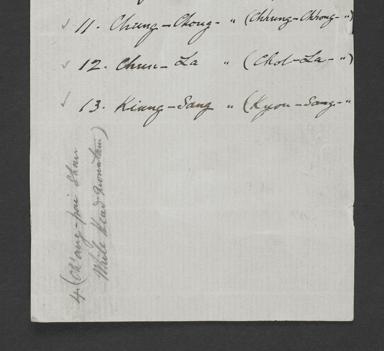 ✓ 11. Chung-Chong- " (Chhung-Chhong- ")
✓ 12. Chun-La " (Chol-La- ")
✓ 13. Kiung-Sang " (Kyon-Sang- "
4 (Ch'ang-pai Shan
White Head Mountain)